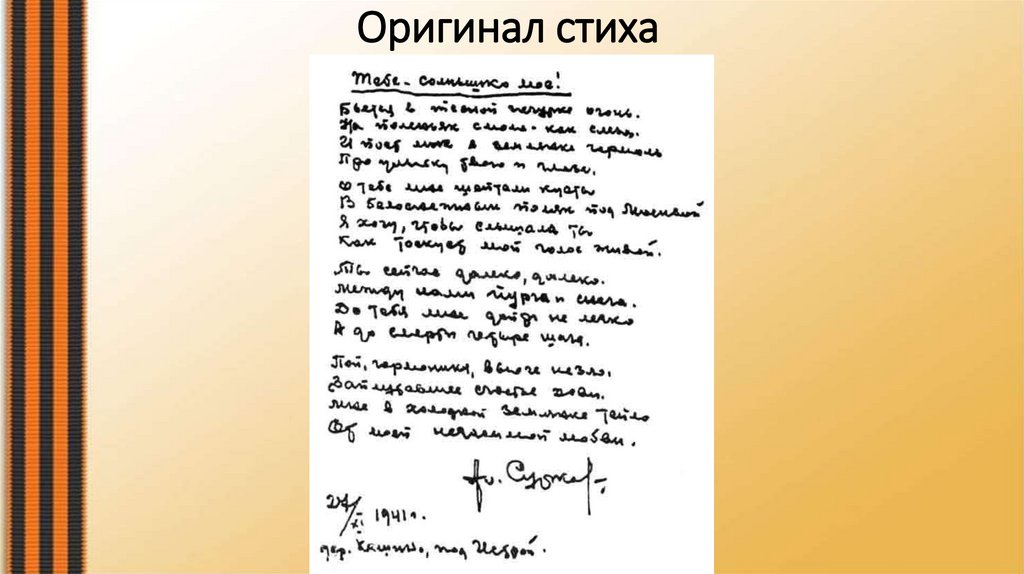 Оригинал стиха
Тебе – солнышко мое!
Бьется в тесной печурке огонь.
На поленьях смола – как слеза.
И поет мне в землянке гармонь
Про улыбку твою и глаза.
О тебе мне шептали кусты
В белоснежных полях под Москвой
Я хочу, чтобы слышала ты
Как тоскует мой голос живой.
Ты сейчас далеко, далеко.
Между нами пурга и снега.
До тебя мне дойти не легко
А до смерти четыре шага.
Пой, гармоника, вьюге назло.
Заплутавшее счастье зови.
Мне в холодной землянке тепло
От моей негасимой любви.
Ал. Сурков.
27/XI 1941 г.
дер. Кашино, под Истрой.